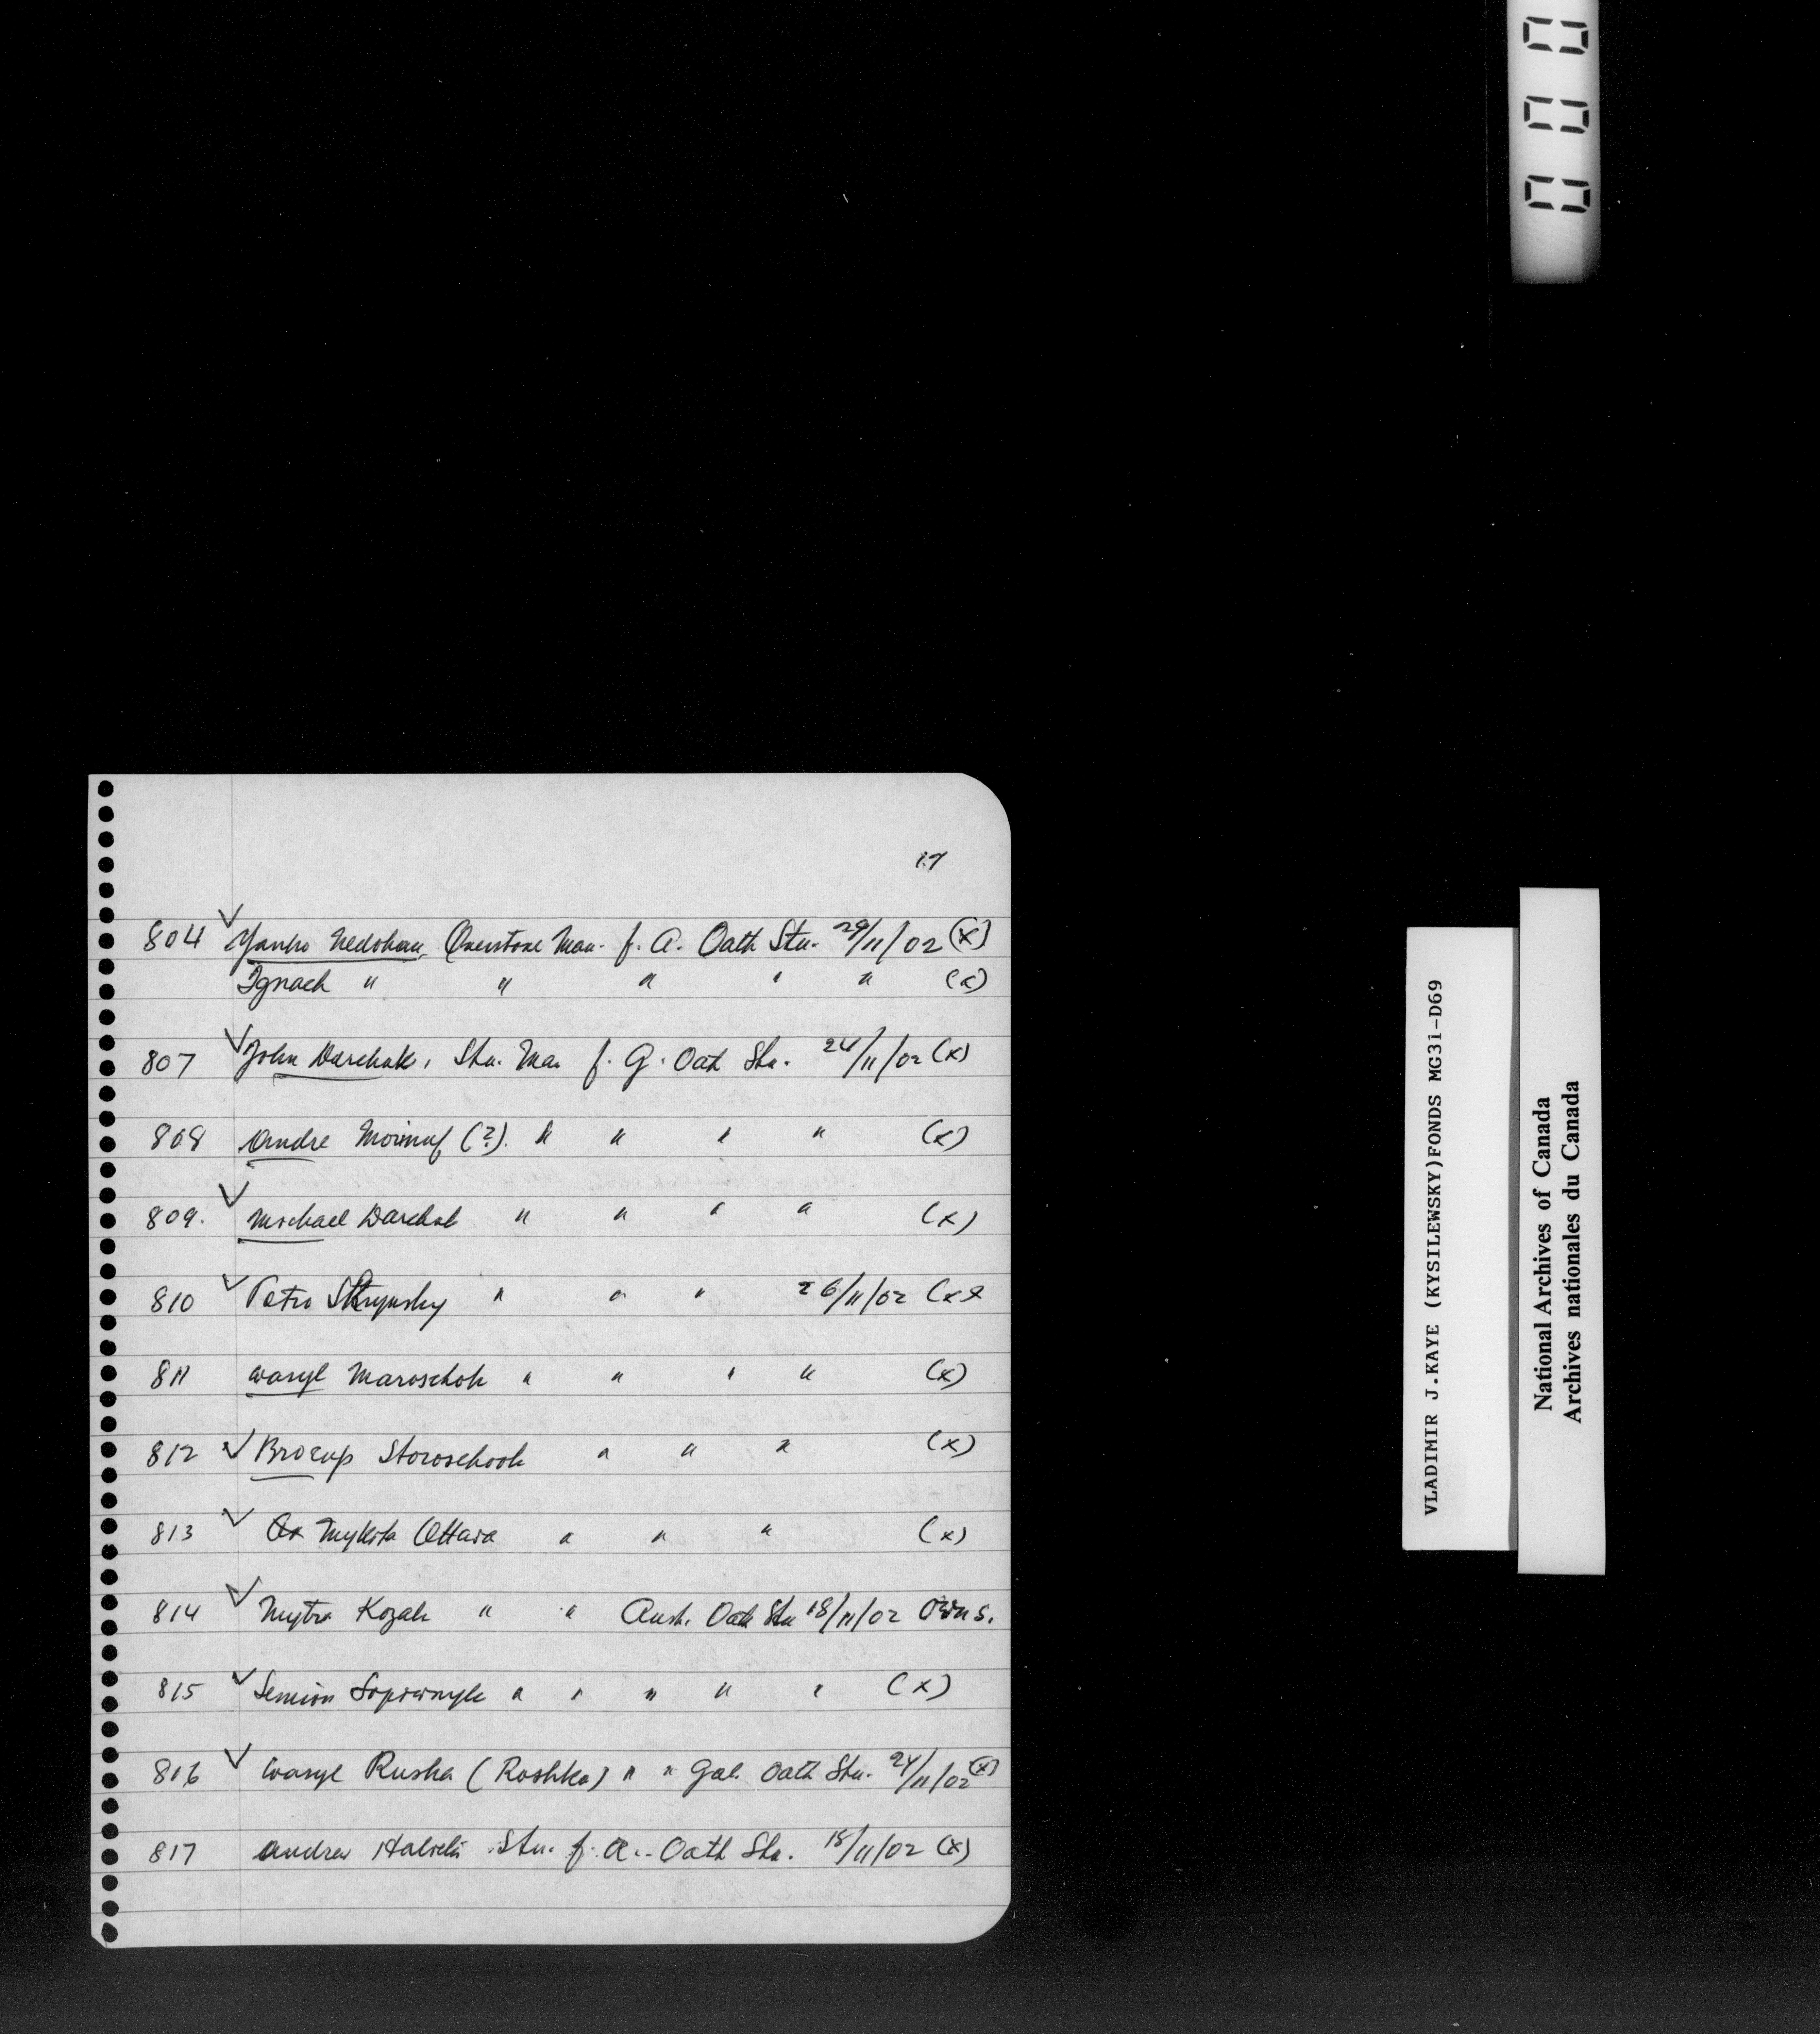 17
804 ✓ Yanko Nedohan, Overstone Man. f. A. Oath Stu. 29/11/02 (x)
Ignach " " " " " (x)
807 ✓ John Darchuk, Stu. Man f. G. Oath Stu. 24/11/02 (x)
808 Andre (?). " " " " (x)
809. ✓ Michael Darchuk " " " " (x)
810 ✓ Petro " " " 26/11/02 (x)
811 Wasyl Maroschok " " " " (x)
812 ✓ Storoschook " " " (x)
813 ✓ Mykita Ottawa " " " (x)
814 ✓ Mytro Kozak " " Aust. Oath Stu 18/11/02 Own s.
815 ✓ Semion " " " " " (x)
816 ✓ Wasyl Ruska (Roshko) " " Gal. Oath Stu. 24/11/02 (x)
817 Andrew Stu. f. A. Oath Stu. 18/11/02 (x)
VLADIMIR J.KAYE (KYSILEWSKY)FONDS MG31-D69
National Archives of Canada
Archives nationales du Canada